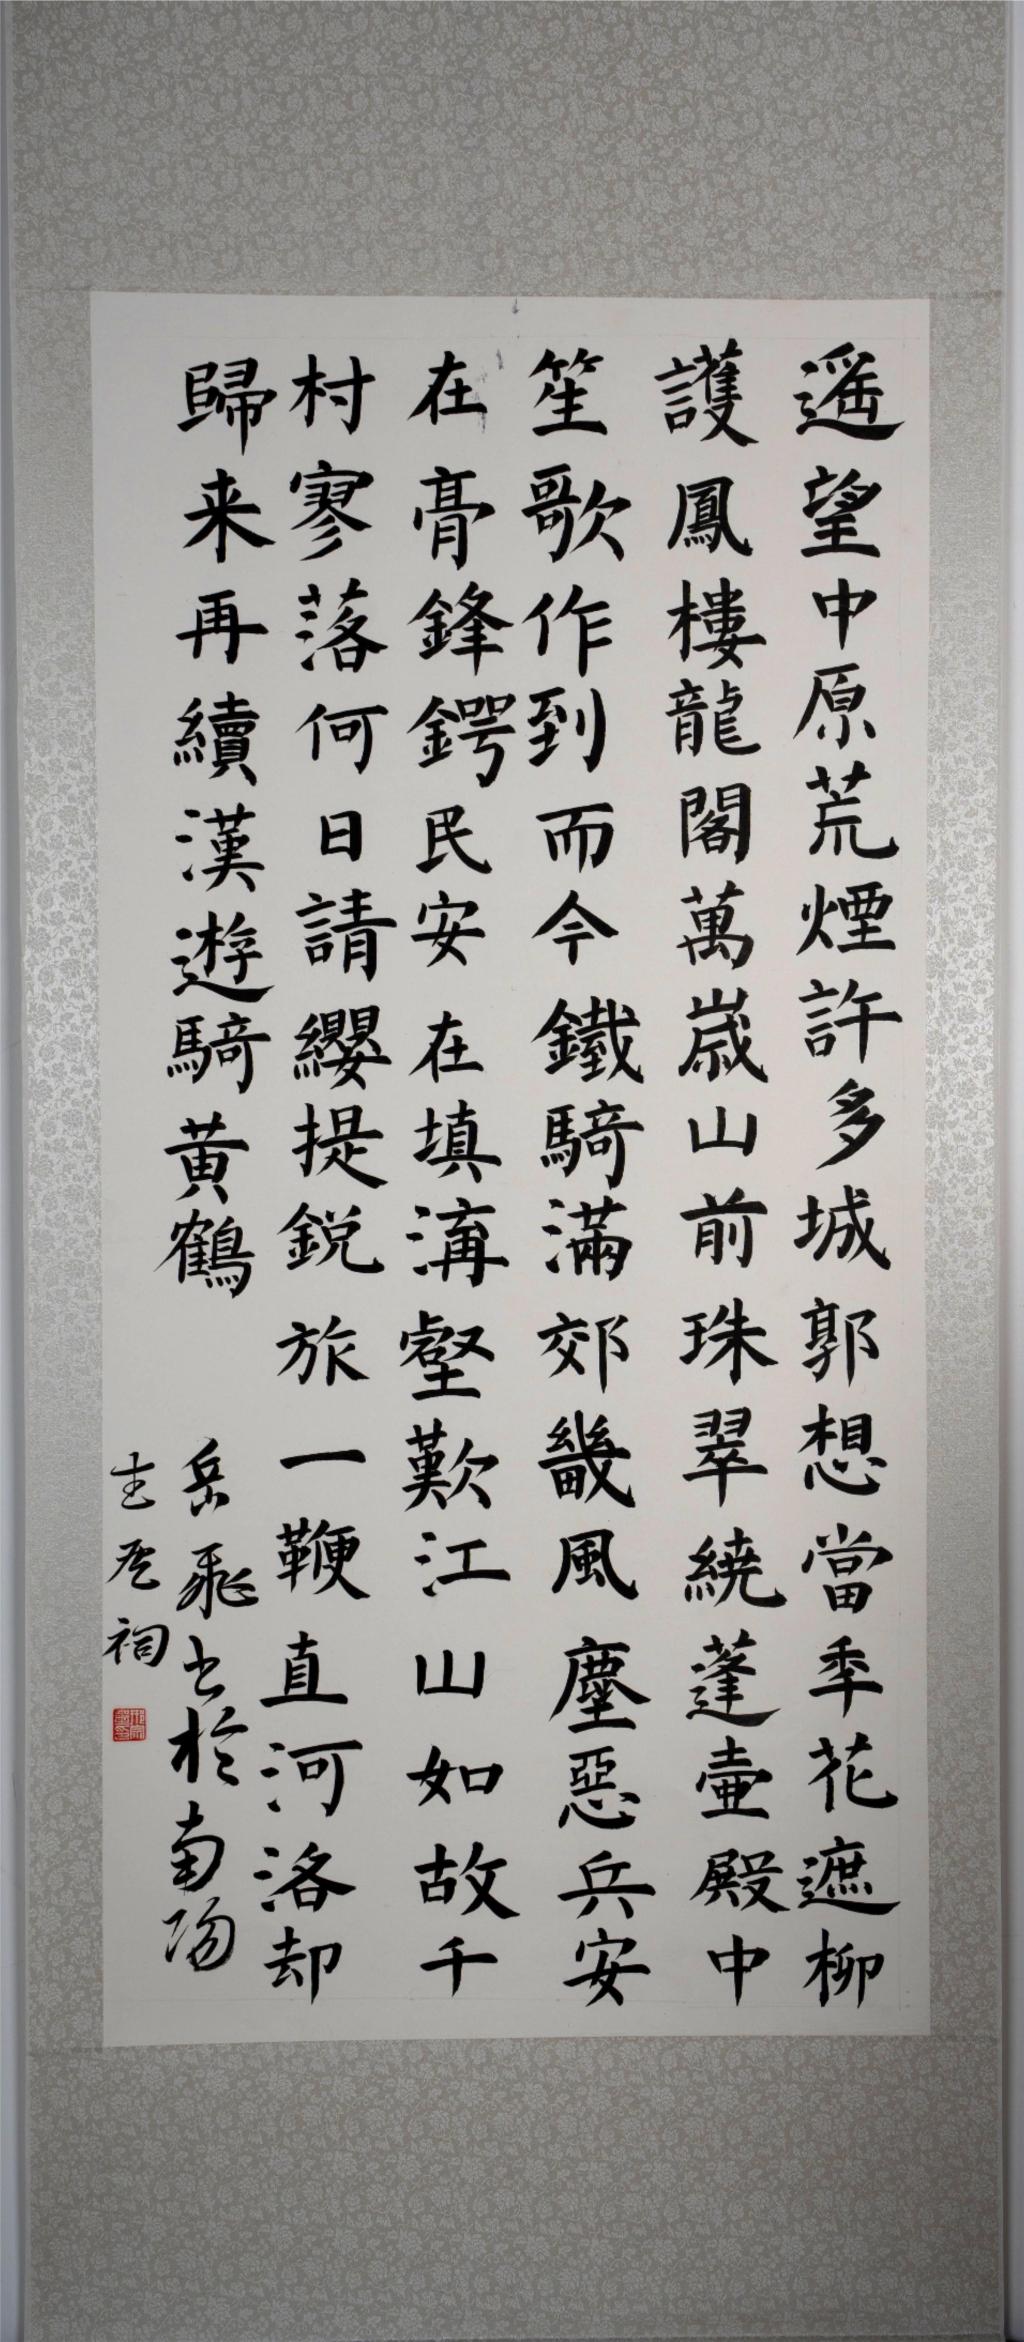 遥望中原荒煙許多城郭想當季花遮柳
護鳳樓龍閣萬歳山前珠翠繞蓬壷殿中
笙歌作到而今鐵騎滿郊畿風塵惡兵安
在膏鋒鍔民安在填溝壑歎江山如故千
村寥落何日請纓提鋭旅一鞭直河洛却
歸来再續漢遊騎黄鶴
岳飛書於南陽
祠